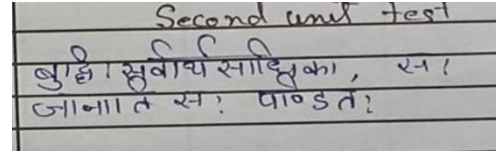 Second unit test
बुद्धि । सर्वार्थ साधिका , स ।
जानाति स : पाण्डत :